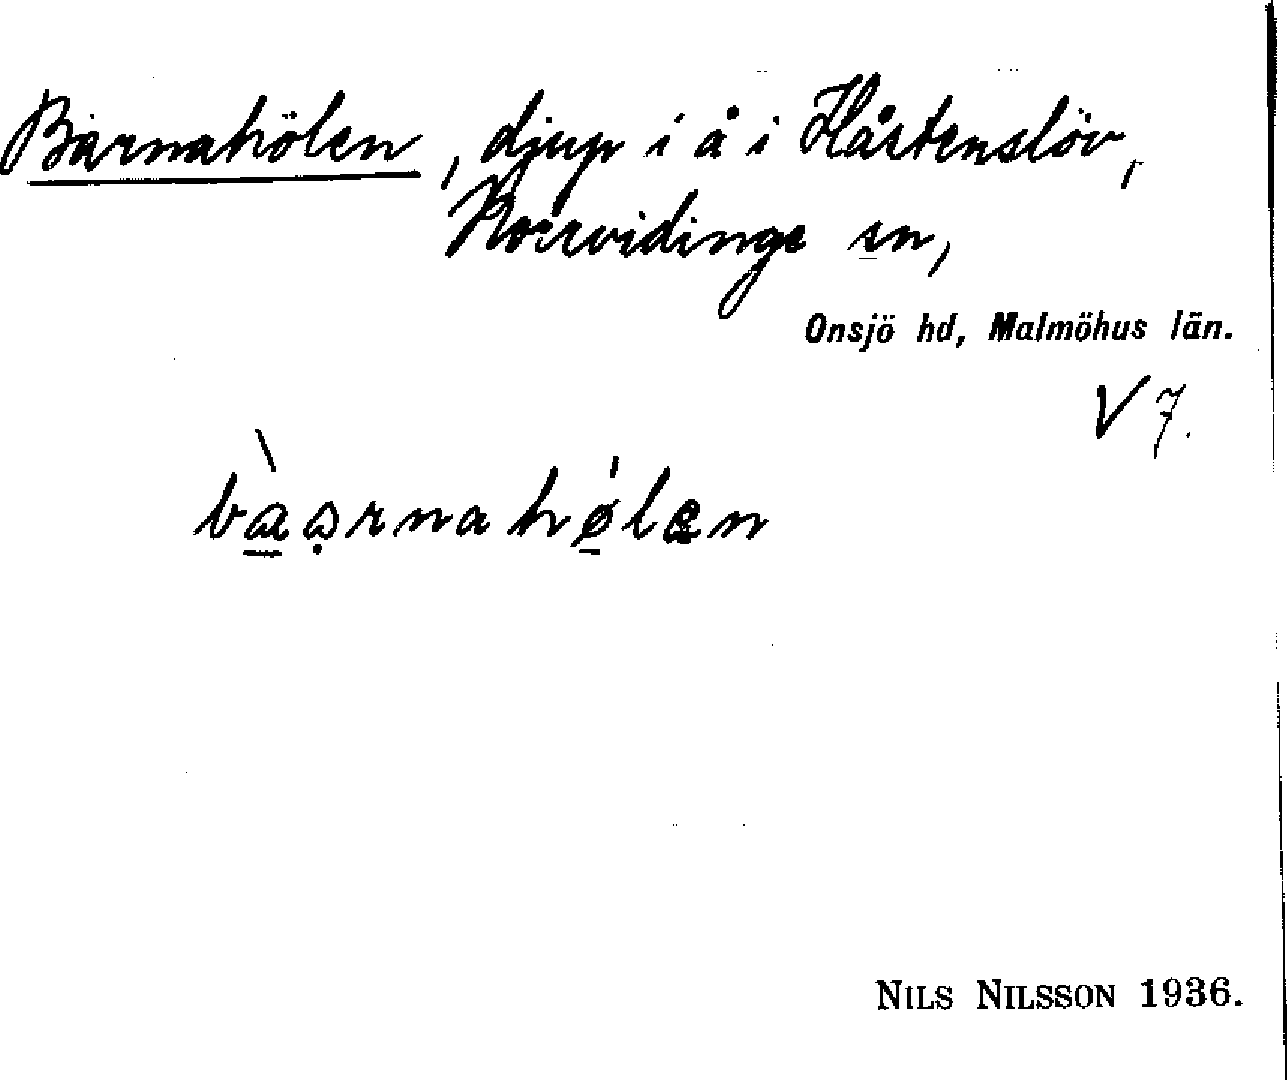 Barnahölen, djup i å i Håstenslöv,
Norrvidinge sn,
Onsjö hd, Malmöhus län.
V 7.
NILS NILSSON 1936.